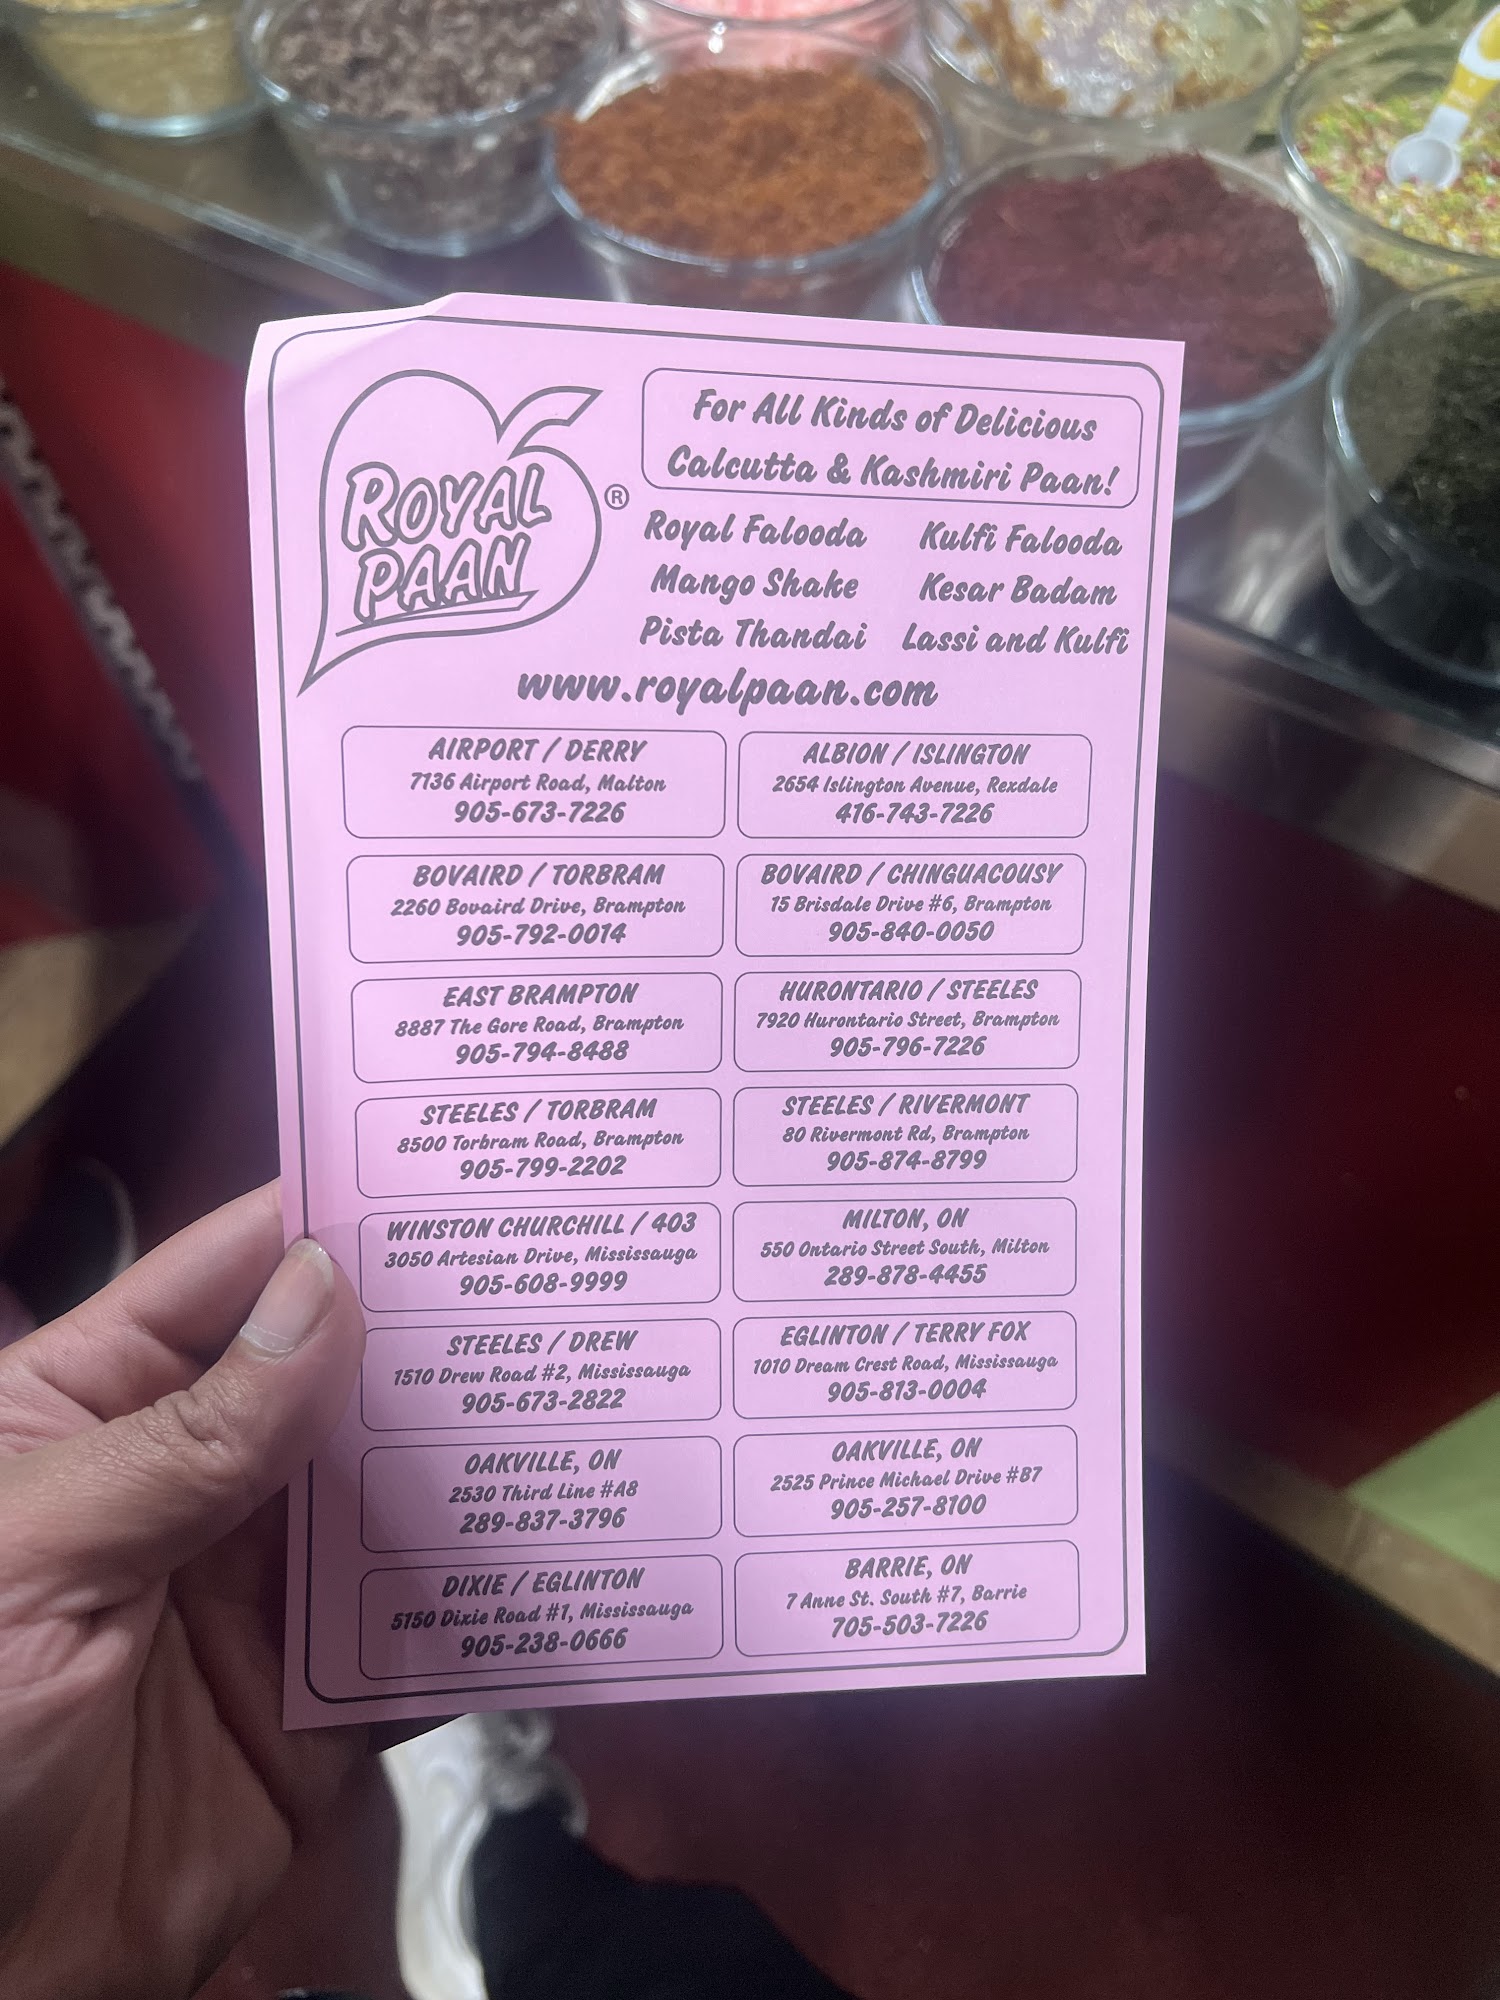 ROYAL
PAAN
®
For All Kinds of Delicious
Calcutta & Kashmiri Paan!
Royal Falooda
Kulfi Falooda
Mango Shake
Kesar Badam
Pista Thandai
Lassi and Kulfi
www.royalpaan.com
AIRPORT / DERRY
7136 Airport Road, Malton
905-673-7226
ALBION / ISLINGTON
2654 Islington Avenue, Rexdale
416-743-7226
BOVAIRD / TORBRAM
2260 Bovaird Drive, Brampton
905-792-0014
BOVAIRD / CHINGUACOUSY
15 Brisdale Drive #6, Brampton
905-840-0050
EAST BRAMPTON
8887 The Gore Road, Brampton
905-794-8488
HURONTARIO / STEELES
7920 Hurontario Street, Brampton
905-796-7226
STEELES / TORBRAM
8500 Torbram Road, Brampton
905-799-2202
STEELES / RIVERMONT
80 Rivermont Rd, Brampton
905-874-8799
WINSTON CHURCHILL / 403
3050 Artesian Drive, Mississauga
905-608-9999
MILTON, ON
550 Ontario Street South, Milton
289-878-4455
STEELES / DREW
1510 Drew Road #2, Mississauga
905-673-2822
EGLINTON / TERRY FOX
1010 Dream Crest Road, Mississauga
905-813-0004
OAKVILLE, ON
2530 Third Line #A8
289-837-3796
OAKVILLE, ON
2525 Prince Michael Drive #B7
905-257-8100
DIXIE / EGLINTON
5150 Dixie Road #1, Mississauga
905-238-0666
BARRIE, ON
7 Anne St. South #7, Barrie
705-503-7226